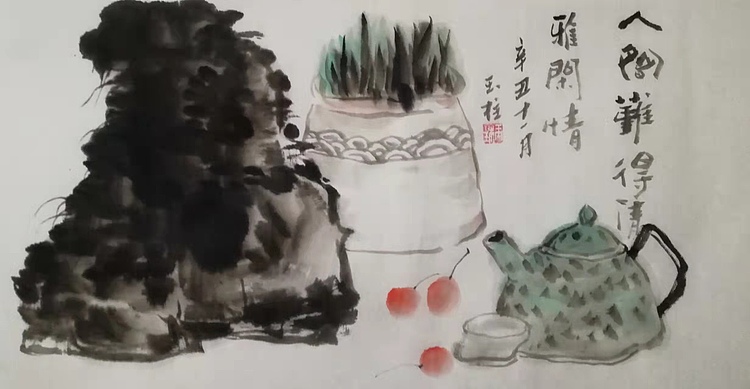 人間難得清
雅閑情
辛丑十一月
玉柱